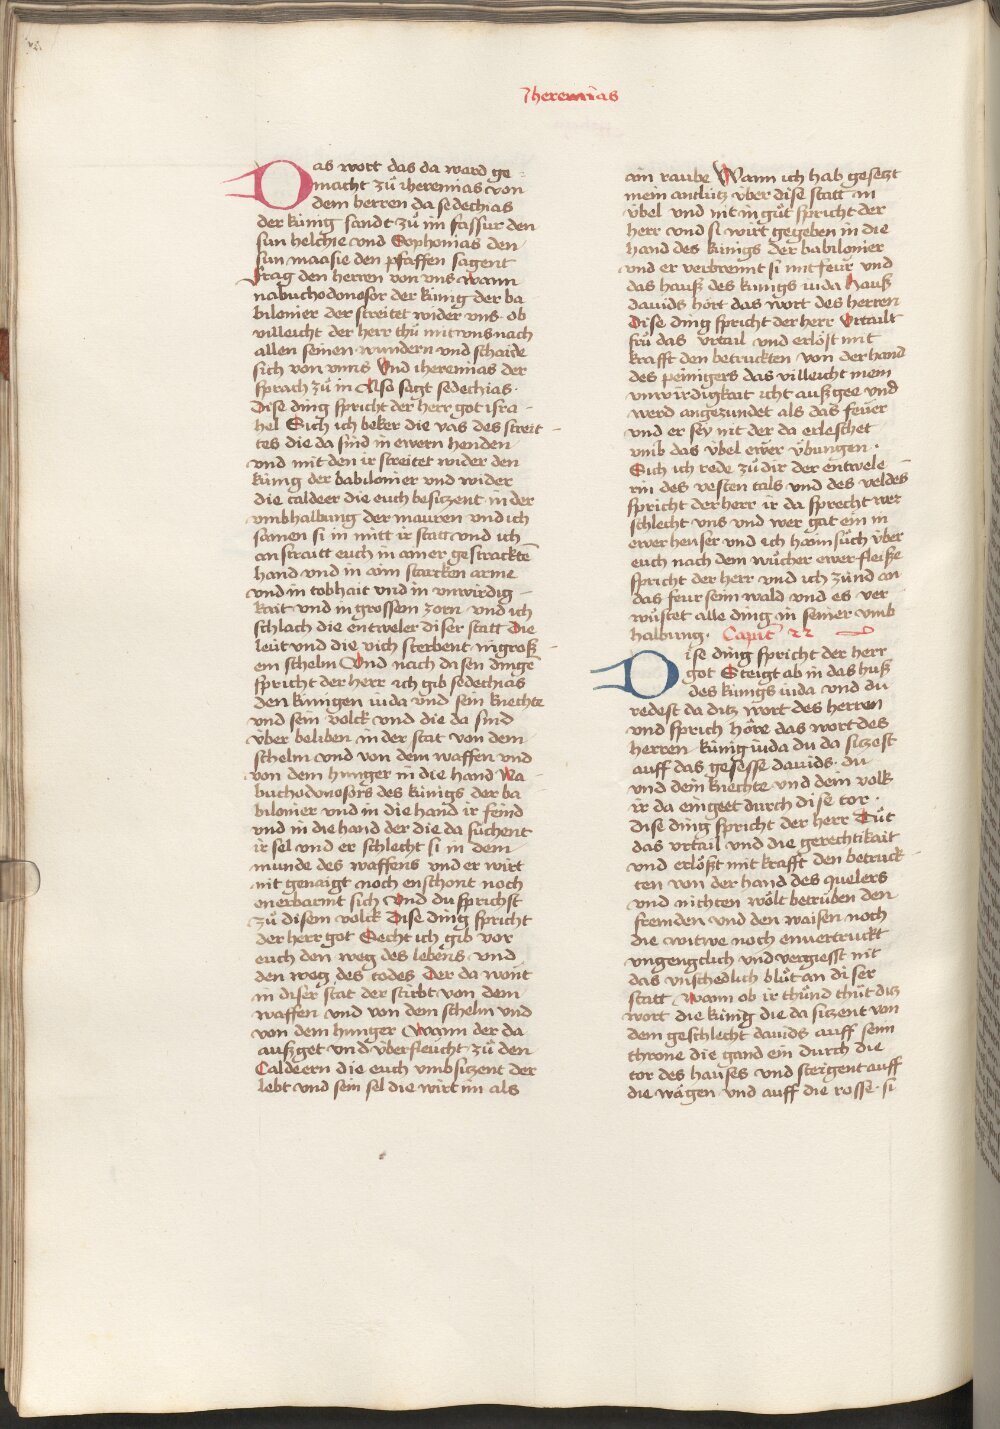 Jheremias
Das wort das da ward ge
macht zů iheremias von
dem herren da sedechias
der künig sandt zů im fassur den
sun helchie vnd Sophonias den
sun maasie den pfaffen sagent
frag den herren von vns wann
nabuchodonosor der künig der ba
bilonier der streitet wider vns · ob
villeicht der herr thů mit vns nach
allen seinen wundern vnd schaide
sich von vnns Vnd iheremias der
sprach zů in Also sagt sedechias ·
Dise ding spricht der herr got isra-
hel Sich ich beker die vas des streit-
tes die da sind in ewern henden
vnd mit den ir streitet wider den
künig der babilonier vnd wider
die caldeer die euch besitzent in der
vmbhalbung der mauren vnd ich
samen si in mitt ir statt vnd ich
an streitt euch in ainer gestrackten
hand vnd in aim starcken arme
vnd in tobhait vnd in vnwirdig-
kait vnd in grossem zorn vnd ich
schlach die entweler diser statt Die
leüt vnd die vich sterbent in groß-
em schelm Vnd nach disen dinge
spricht der herr ich gib sedechias
den künigen iuda vnd sein knechte
vnd sein volck vnd die da sind
über beliben in der stat von dem
schelm vnd von dem waffen vnd
von dem hunger in die hand Na-
buchodonosors des künigs der ba
bilonier vnd in die hand ir feind
vnd in die hand der die da suchent
ir sel vnd er schlecht si in dem
munde des waffens vnd er wirt
nit genaigt noch enschont noch
enerbarmt sich Vnd du sprichst
zů disem volck Dise ding spricht
der herr got Secht ich gib vor
euch den weg des lebens vnd
den weg des todes Der da wont
in diser stat der stirbt von dem
waffen vnd von dem schelm vnd
von dem hunger Wann der da
außget vnd überfleücht zů den
Caldeern die euch vmbsitzent der
lebt vnd sein sel die wirt im als
ain raube Wann ich hab gesetzt
mein antlütz über dise statt in
übel vnd nit in gůt spricht der
herr vnd si wirt gegeben in die
hand des künigs der babilonier
vnd er verbrennt si mit feür vnd
das hauß des künigs iuda Hauß
dauids hört das wort des herren
Dise ding spricht der herr Vrtailt
frů das vrtail vnd erlöst mit
krafft den betruckten von der hand
des peinigers das villeicht mein
vnwirdigkait icht außgee vnd
werd angezundet als das feüer
vnd er sey nit der da erleschet
vmb das übel ewer übungen ·
Sich ich rede zů dir der entwele-
rin des vesten tals vnd des veldes
spricht der herr ir da sprecht wer
schlecht vns vnd wer gat ein in
ewer heuser vnd ich haimsůch über
euch nach dem wůcher ewer fleiße
spricht der herr vnd ich zünd an
das feur seim wald vnd es ver
wůstet alle ding in seiner vmb
halbung · Capit 22
Dise ding spricht der herr
got Steigt ab in das huß
des künigs iuda vnd du
redest da ditz wort des herren
vnd sprich höre das wort des
herren künig iuda du da sitzest
auff das gesesse dauids · du
vnd dein knechte vnd dein volk
ir da eingeet durch dise tor ·
dise ding spricht der herr Tůt
das vrtail vnd die gerechtikait
vnd erlößt mit krafft den betruck-
ten von der hand des quelers
vnd nichten wölt betrüben den
fremden vnd den waisen noch
die witwe noch envertruckt
vngengclich vnd vergiesst nit
das vnschedlich blůt an diser
statt Wann ob ir thůnd thůt ditz
wort die künig die da sitzent von
dem geschlecht dauids auff seim
throne die gand ein durch die
tor des hauses vnd steigent auff
die wägen vnd auff die rosse · si